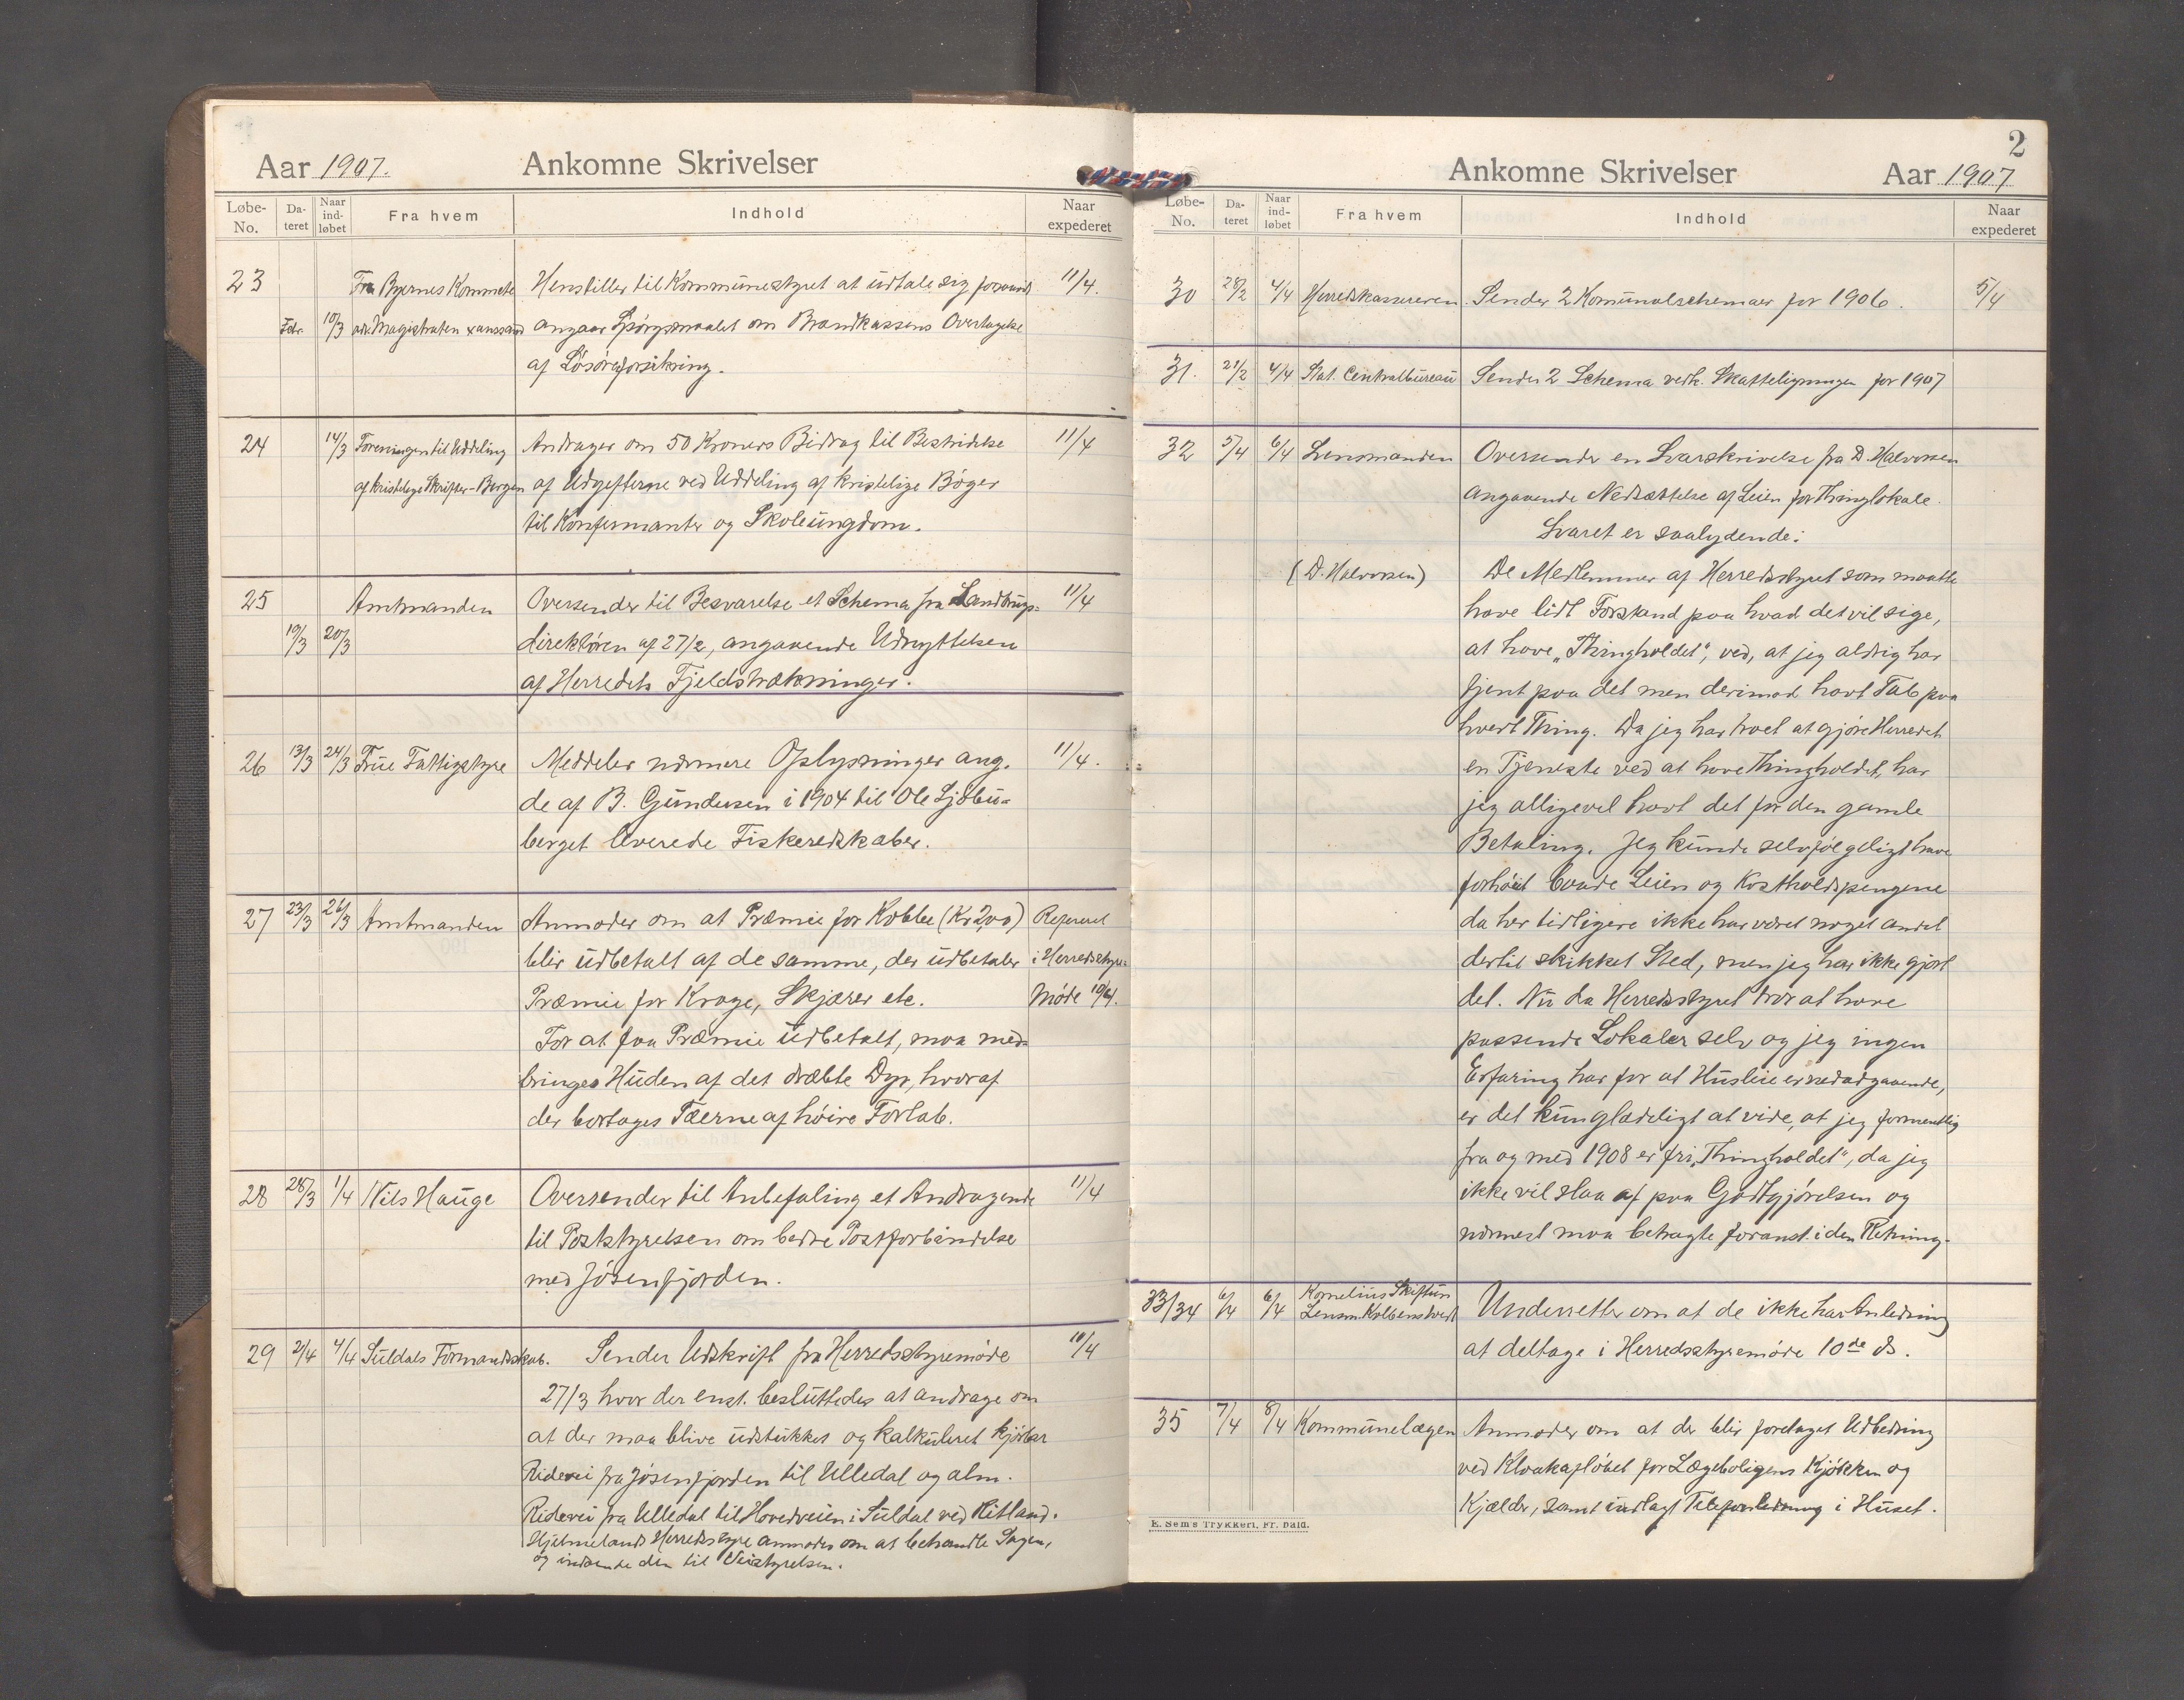 Aar 1907. Ankomne Skrivelser
Løbe-No. Da-teret Naar ind-løbet Fra hvem Indhold Naar expederet
23 Febr. 10/3 Fra Byernes Kommite Henstiller til Kommunestyret at udtale sig 11/4.
adr. Magistraten angaar Spörgsmaalet om Brandkassens Overtagelse
af Lösöreforsikring.
24 14/3 Foreningen til Uddeling Andrager om 50 Kroners Bidrag til Bestridelse 11/4
af kristelige Skrifter - Bergen af Udgifterne ved Uddeling af kristelige Böger
til Konfirmanter og Skoleungdom.
25 Amtmanden Oversender til Besvarelse et Schema fra Landbrugs- 11/4
19/3 20/3 direktören af 27/2, angaaende Udnyttelsen
af Herredets Fjeldstrækninger.
26 13/3 24/3 Frue Fattigstyre Meddeler nærmere Oplysninger ang. 11/4.
de af B. Gundersen i 1904 til Ole Ljöbu-
berget leverede Fiskeredskaber.
27 23/3 26/3 Amtmanden Anmoder om at Præmie for Kobbe (Kr 2,00) Refereret
blir udbetalt af de samme, der udbetaler i Herredstyre-
Præmie for Krage, Skjærer etc. Møde 10/4.
For at faa Præmie udbetalt, maa med-
bringes Huden af det dræbte Dyr, hvoraf
der bortages Tæerne af höire Forlab.
28 28/3 1/4 Nils Hauge Oversender til Anbefaling et Andragende 11/4
til Poststyrelsen om bedre Postforbindelse
med Jösenfjorden.
29 2/4 4/4 Suldals Formandskab. Sender Udskrift fra Herredsstyremöde 10/4
27/3 hvor der enst. besluttedes at andrage om
at der maa blive udstukket og kalkuleret kjörbar
Ridevei fra Jösenfjorden til Ulledal og alm.
Ridevei fra Ulledal til Hovedveien i Suldal ved Ritland.
Hjelmelands Herredsstyre anmodes om at behandle Sagen,
og indsende den til Veistyrelsen.
2
Ankomne Skrivelser Aar 1907
Løbe-No. Da-teret Naar ind-løbet Fra hvem Indhold Naar expederet
30 28/2 4/4 Herredskassereren Sender 2 Komunalschemaer for 1906. 5/4
31. 21/2 4/4 Stat. Centralbureau Sender 2 Schema vedk. Skatteligningen for 1907
32 5/4 6/4 Lensmanden Oversender en Svarskrivelse fra D. Halvorsen
angaaende Nedsættelse af Leien for Thinglokale.
Svaret er saalydende:
(D. Halvorsen) De Medlemmer af Herredsstyret som maatte
have lidt Forstand paa hvad det vil sige,
at have „Thingholdet", ved, at jeg aldrig har
tjent paa det men derimod havt Tab paa
hvert Thing. Da jeg har troet at gjöre Herredet
en Tjeneste ved at have Thingholdet, har
jeg alligevel havt det for den gamle
Betaling. Jeg kunde selvfölgeligt have
forhöiet baade Leien og Kostholdspengene
da her tidligere ikke har været noget andet
dertil skikket Sted, men jeg har ikke gjort
det. Nu da Herredsstyret tror at have
passende Lokaler selv og jeg ingen
Erfaring har for at Husleie er nedadgaaende,
er det kun glædeligt at vide, at jeg formentlig
fra og med 1908 er fri „Thingholdet", da jeg
ikke vil slaa af paa Godtgjörelsen og
nærmest maa betragte foranst. i den Retning.
33/34 6/4 6/4 Kornelius Skiftun
Lensm. Kolbenstvedt Underretter om at de ikke har Anledning
at deltage i Herredsstyremöde 10de ds.
35 7/4 8/4 Kommunelægen Anmoder om at der blir foretaget Udbedring
ved Kloakaflöbet for Lægeboligens Kjökken og
Kjælder, samt indlagt Telefonledning i Huset.
E. Sem's Trykkeri, Fr. hald.